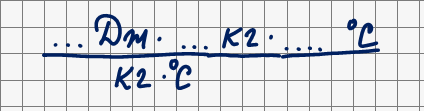 ... Дж · ... кг · .... °C
кг · °C